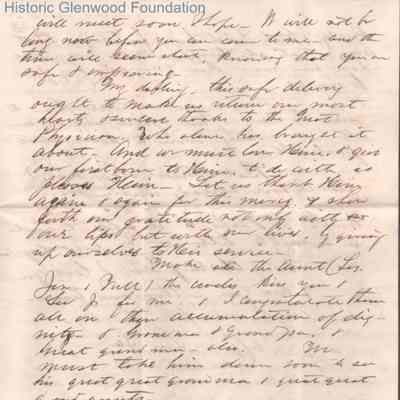 Historic Glenwood Foundation
will meet soon I hope – It will not be
long now before you can come to me – and the
time will seem short, knowing that you are
safe & improving.
My darling, this safe delivery
ought to make us return our most
hearty sincere thanks to the Great
Physician, Who alone has brought it
about. And we must love Him, & give
our firstborn to Him, to do with as
pleases Him – Let us thank Him
again & again for this mercy, & show
forth our gratitude not only with
our lips but with our lives, by giving
up ourselves to His service –
Make all the Aunts (
the cradle kiss you &
for me, & I congratulate them
all on their accumulation of dig-
nity & Grandma & Grandpa, &
Great grandma – also. We
must take him down soon to see
his great great grandma & great great